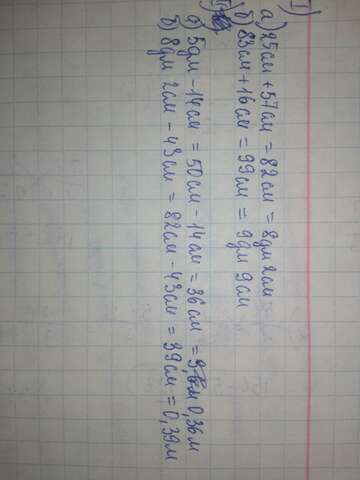 I)
а) 25см + 57см = 82см = 8дм 2см
б) 83см + 16см = 99см = 9дм 9см
а) 5дм - 14см = 50см - 14см = 36см = 0,36м
б) 8дм 2см - 43см = 82см - 43см = 39см = 0,39м